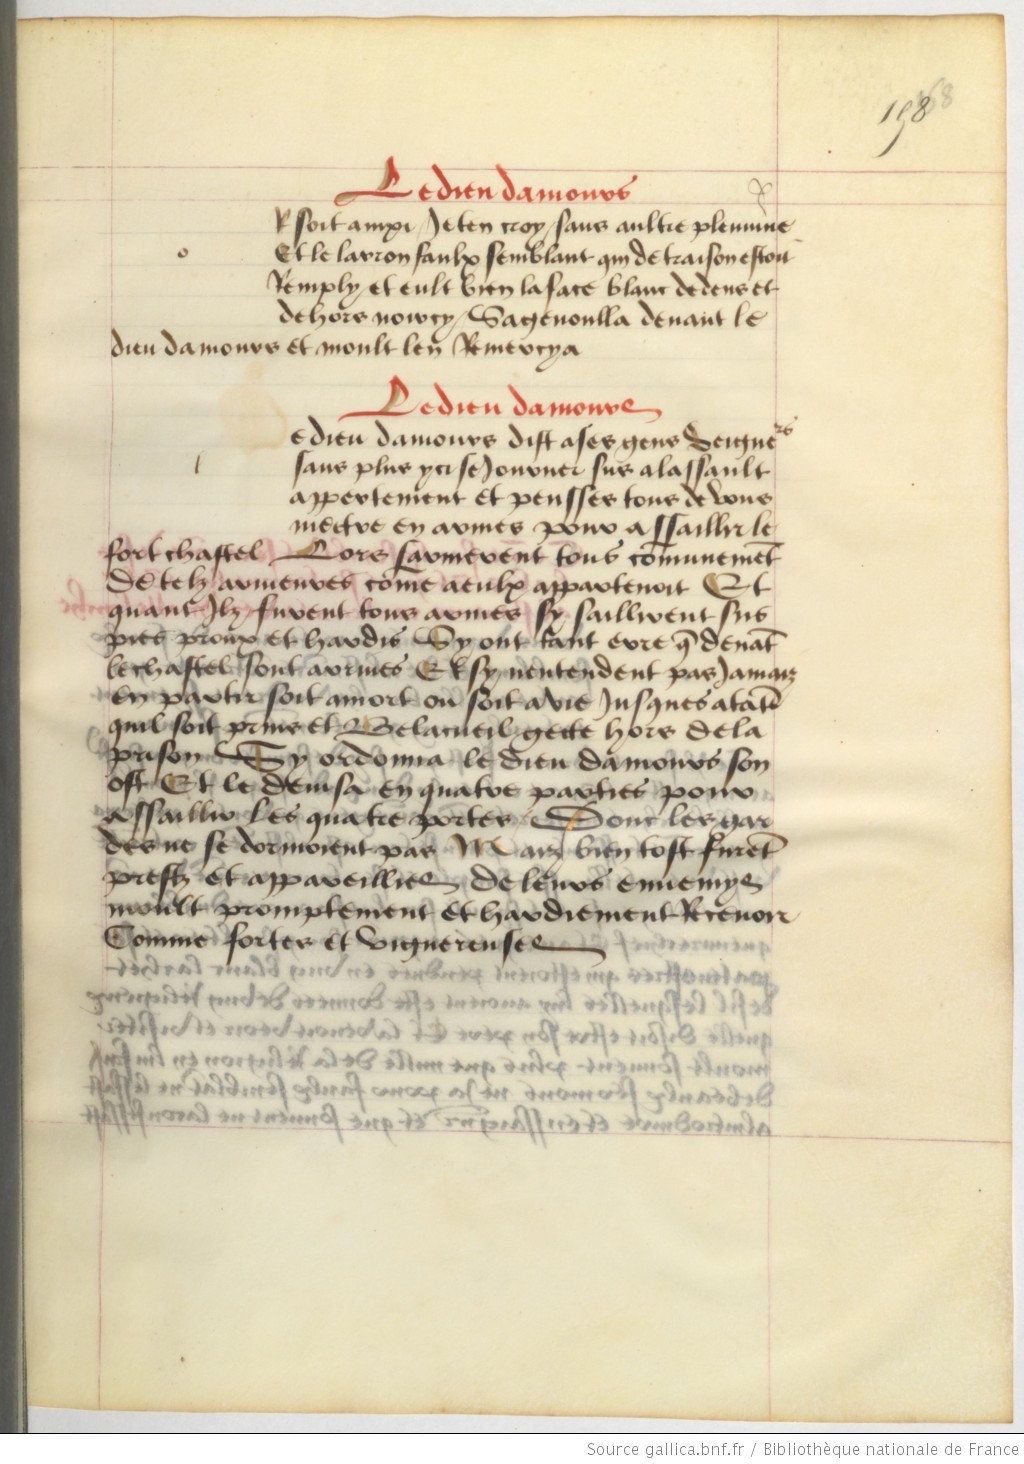 198
168
Le dieu damours
R soit ampi Je ten croy / sans aultre plenune
o
Et le larron faulx semblant qui de traison estoit
Remply / et eult bien la face blanc dedens et
dehors noircy / Sagenoulla deuant le
dieu damours et moult len Remercya
Le dieu damours
e dieu damours dist a ses gens Seigneurs
l
sans plus yci seJourner sus a lassault
appertement et pensses tous de vous
mectre en armes pour assaillir le
fort chastel Lors sarmerent tous cōmunemēt
de telz armeures cōme a eulx appartenoit Et
quant Jlz furent tous armes sy saillirent sus
pies proux et hardis Sy ont tant erre q̄ deuāt
le chastel sont arriues Et sy nentendent pas Jamaiz
en partir soit a mort ou soit a vie Jusques a tāt
quil soit prins et Belacueil gecte hors de la
prison Sy ordonna le dieu damours son
ost Et le deuisa en quatre parties pour
assaillir les quatre portes Dont les gar
des ne se dormoient pas Maiz bien tost furēt
prestz et appareillies de leurs ennemys
moult promptement et hardiement Receuoir
Comme fortes et vigureuses
Source gallica.bnf.fr / Bibliothèque nationale de France